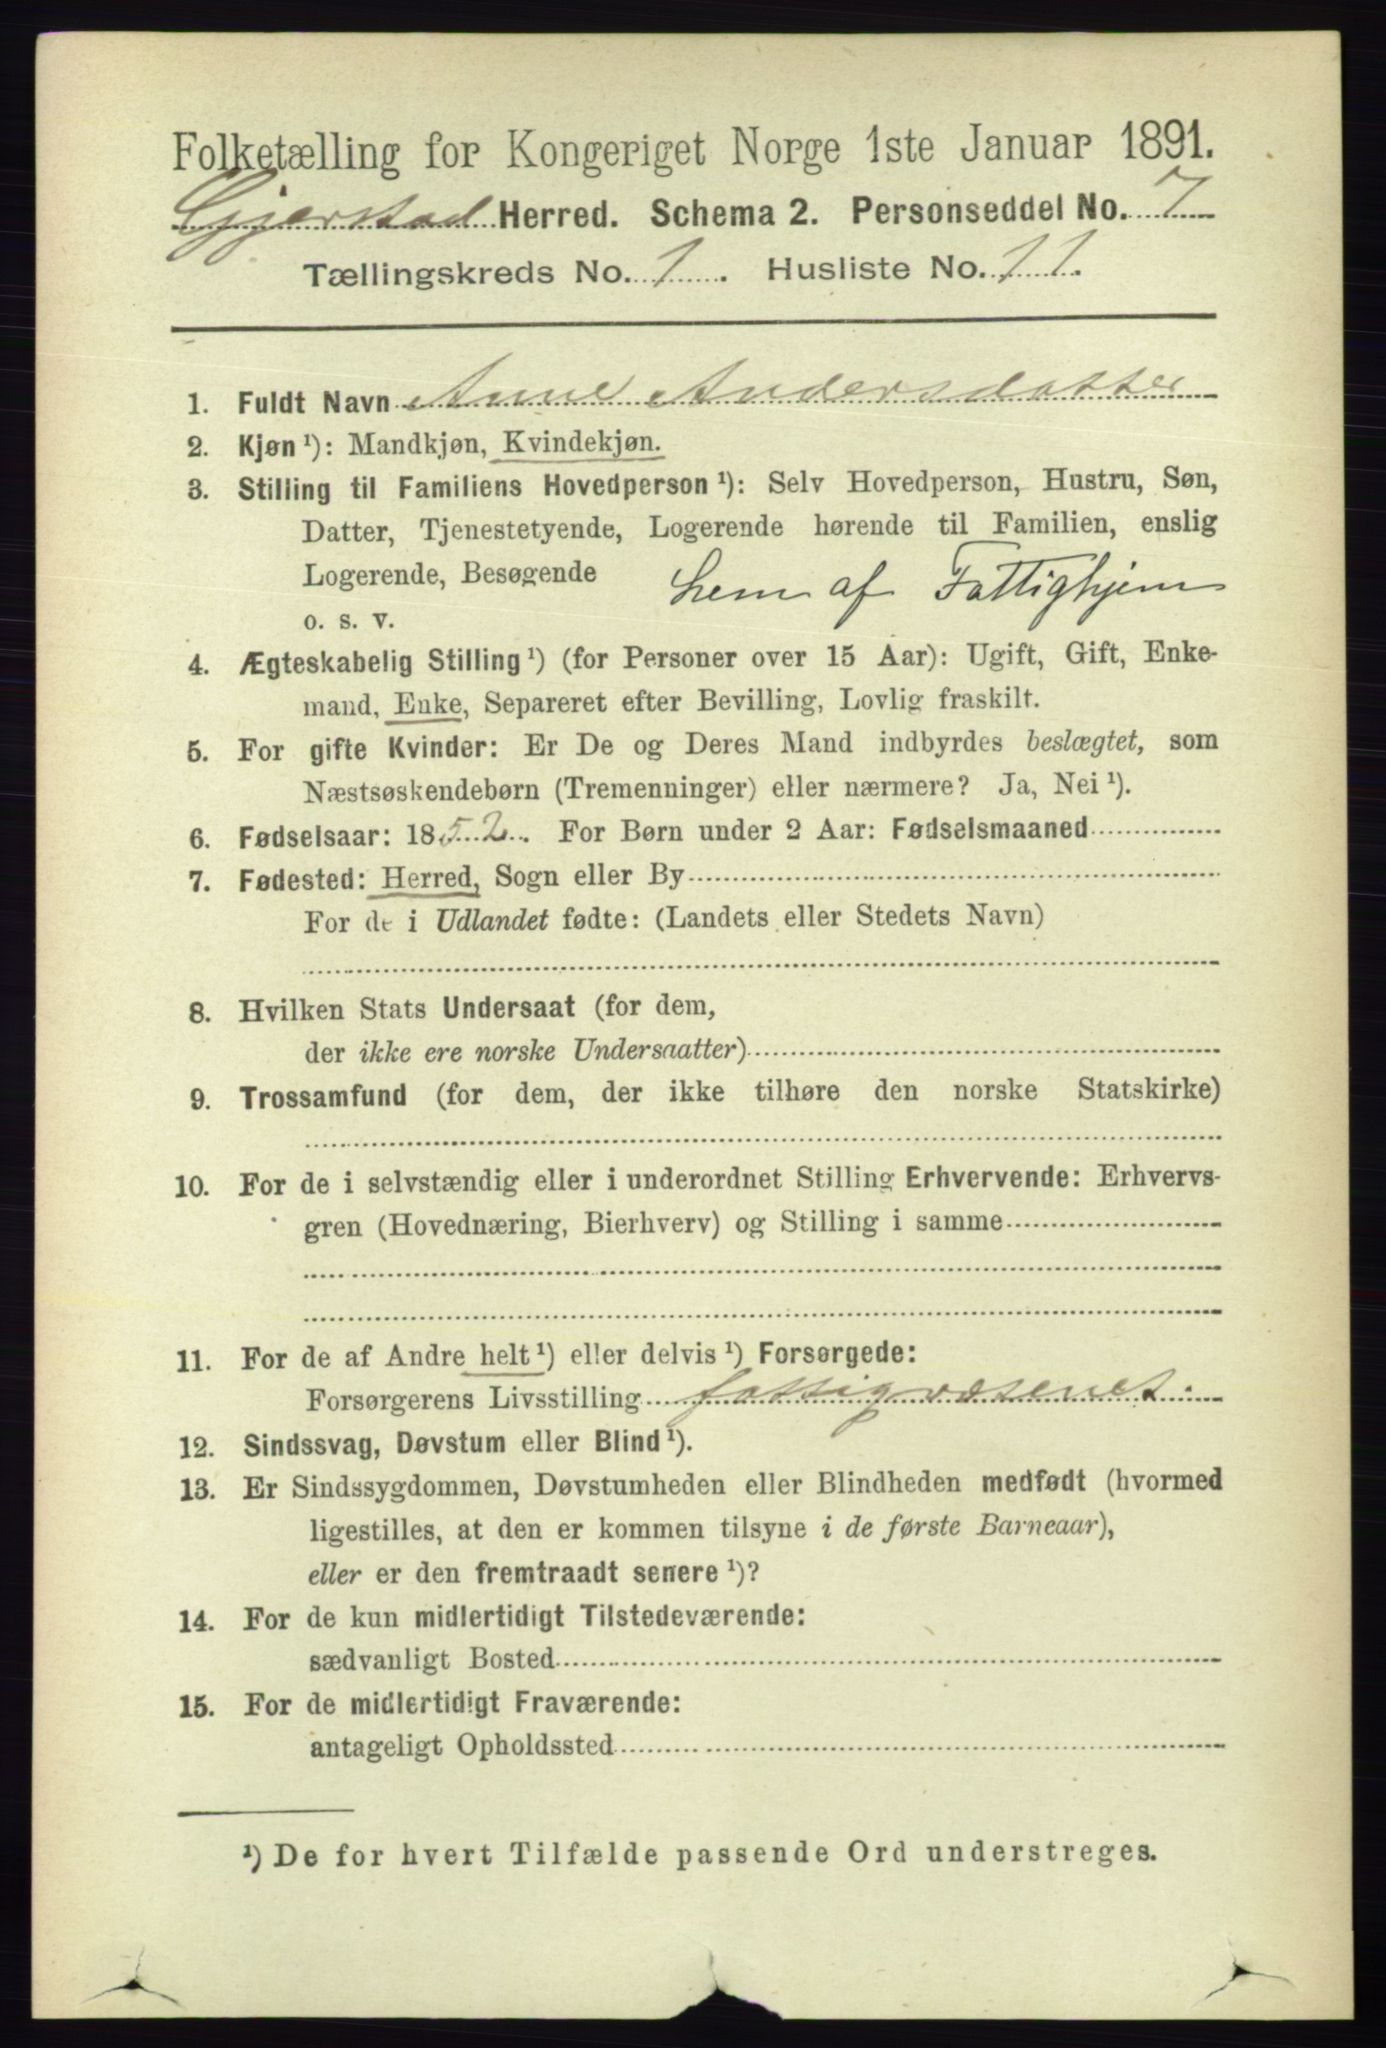 Folketælling for Kongeriget Norge 1ste Januar 1891.
Gjerstad Herred. Schema 2. Personseddel No. 7
Tællingskreds No. 1. Husliste No. 11.
1. Fuldt Navn Anne Andersdatter
2. Kjøn ¹): Mandkjøn, Kvindekjøn.
3. Stilling til Familiens Hovedperson ¹): Selv Hovedperson, Hustru, Søn,
Datter, Tjenestetyende, Logerende hørende til Familien, enslig
Logerende, Besøgende Lem af Fattighjem
o. s. v.
4. Ægteskabelig Stilling ¹) (for Personer over 15 Aar): Ugift, Gift, Enke-
mand, Enke, Separeret efter Bevilling, Lovlig fraskilt.
5. For gifte Kvinder: Er De og Deres Mand indbyrdes beslægtet, som
Næstsøskendebørn (Tremenninger) eller nærmere? Ja, Nei ¹).
6. Fødselsaar: 1852. For Børn under 2 Aar: Fødselsmaaned
7. Fødested: Herred, Sogn eller By
For de i Udlandet fødte: (Landets eller Stedets Navn)
8. Hvilken Stats Undersaat (for dem,
der ikke ere norske Undersaatter)
9. Trossamfund (for dem, der ikke tilhøre den norske Statskirke)
10. For de i selvstændig eller i underordnet Stilling Erhvervende: Erhvervs-
gren (Hovednæring, Bierhverv) og Stilling i samme
11. For de af Andre helt ¹) eller delvis ¹) Forsørgede:
Forsørgerens Livsstilling fattigvæsenet.
12. Sindssvag, Døvstum eller Blind ¹).
13. Er Sindssygdommen, Døvstumheden eller Blindheden medfødt (hvormed
ligestilles, at den er kommen tilsyne i de første Barneaar),
eller er den fremtraadt senere ¹)?
14. For de kun midlertidigt Tilstedeværende:
sædvanligt Bosted
15. For de midlertidigt Fraværende:
antageligt Opholdssted
¹) De for hvert Tilfælde passende Ord understreges.